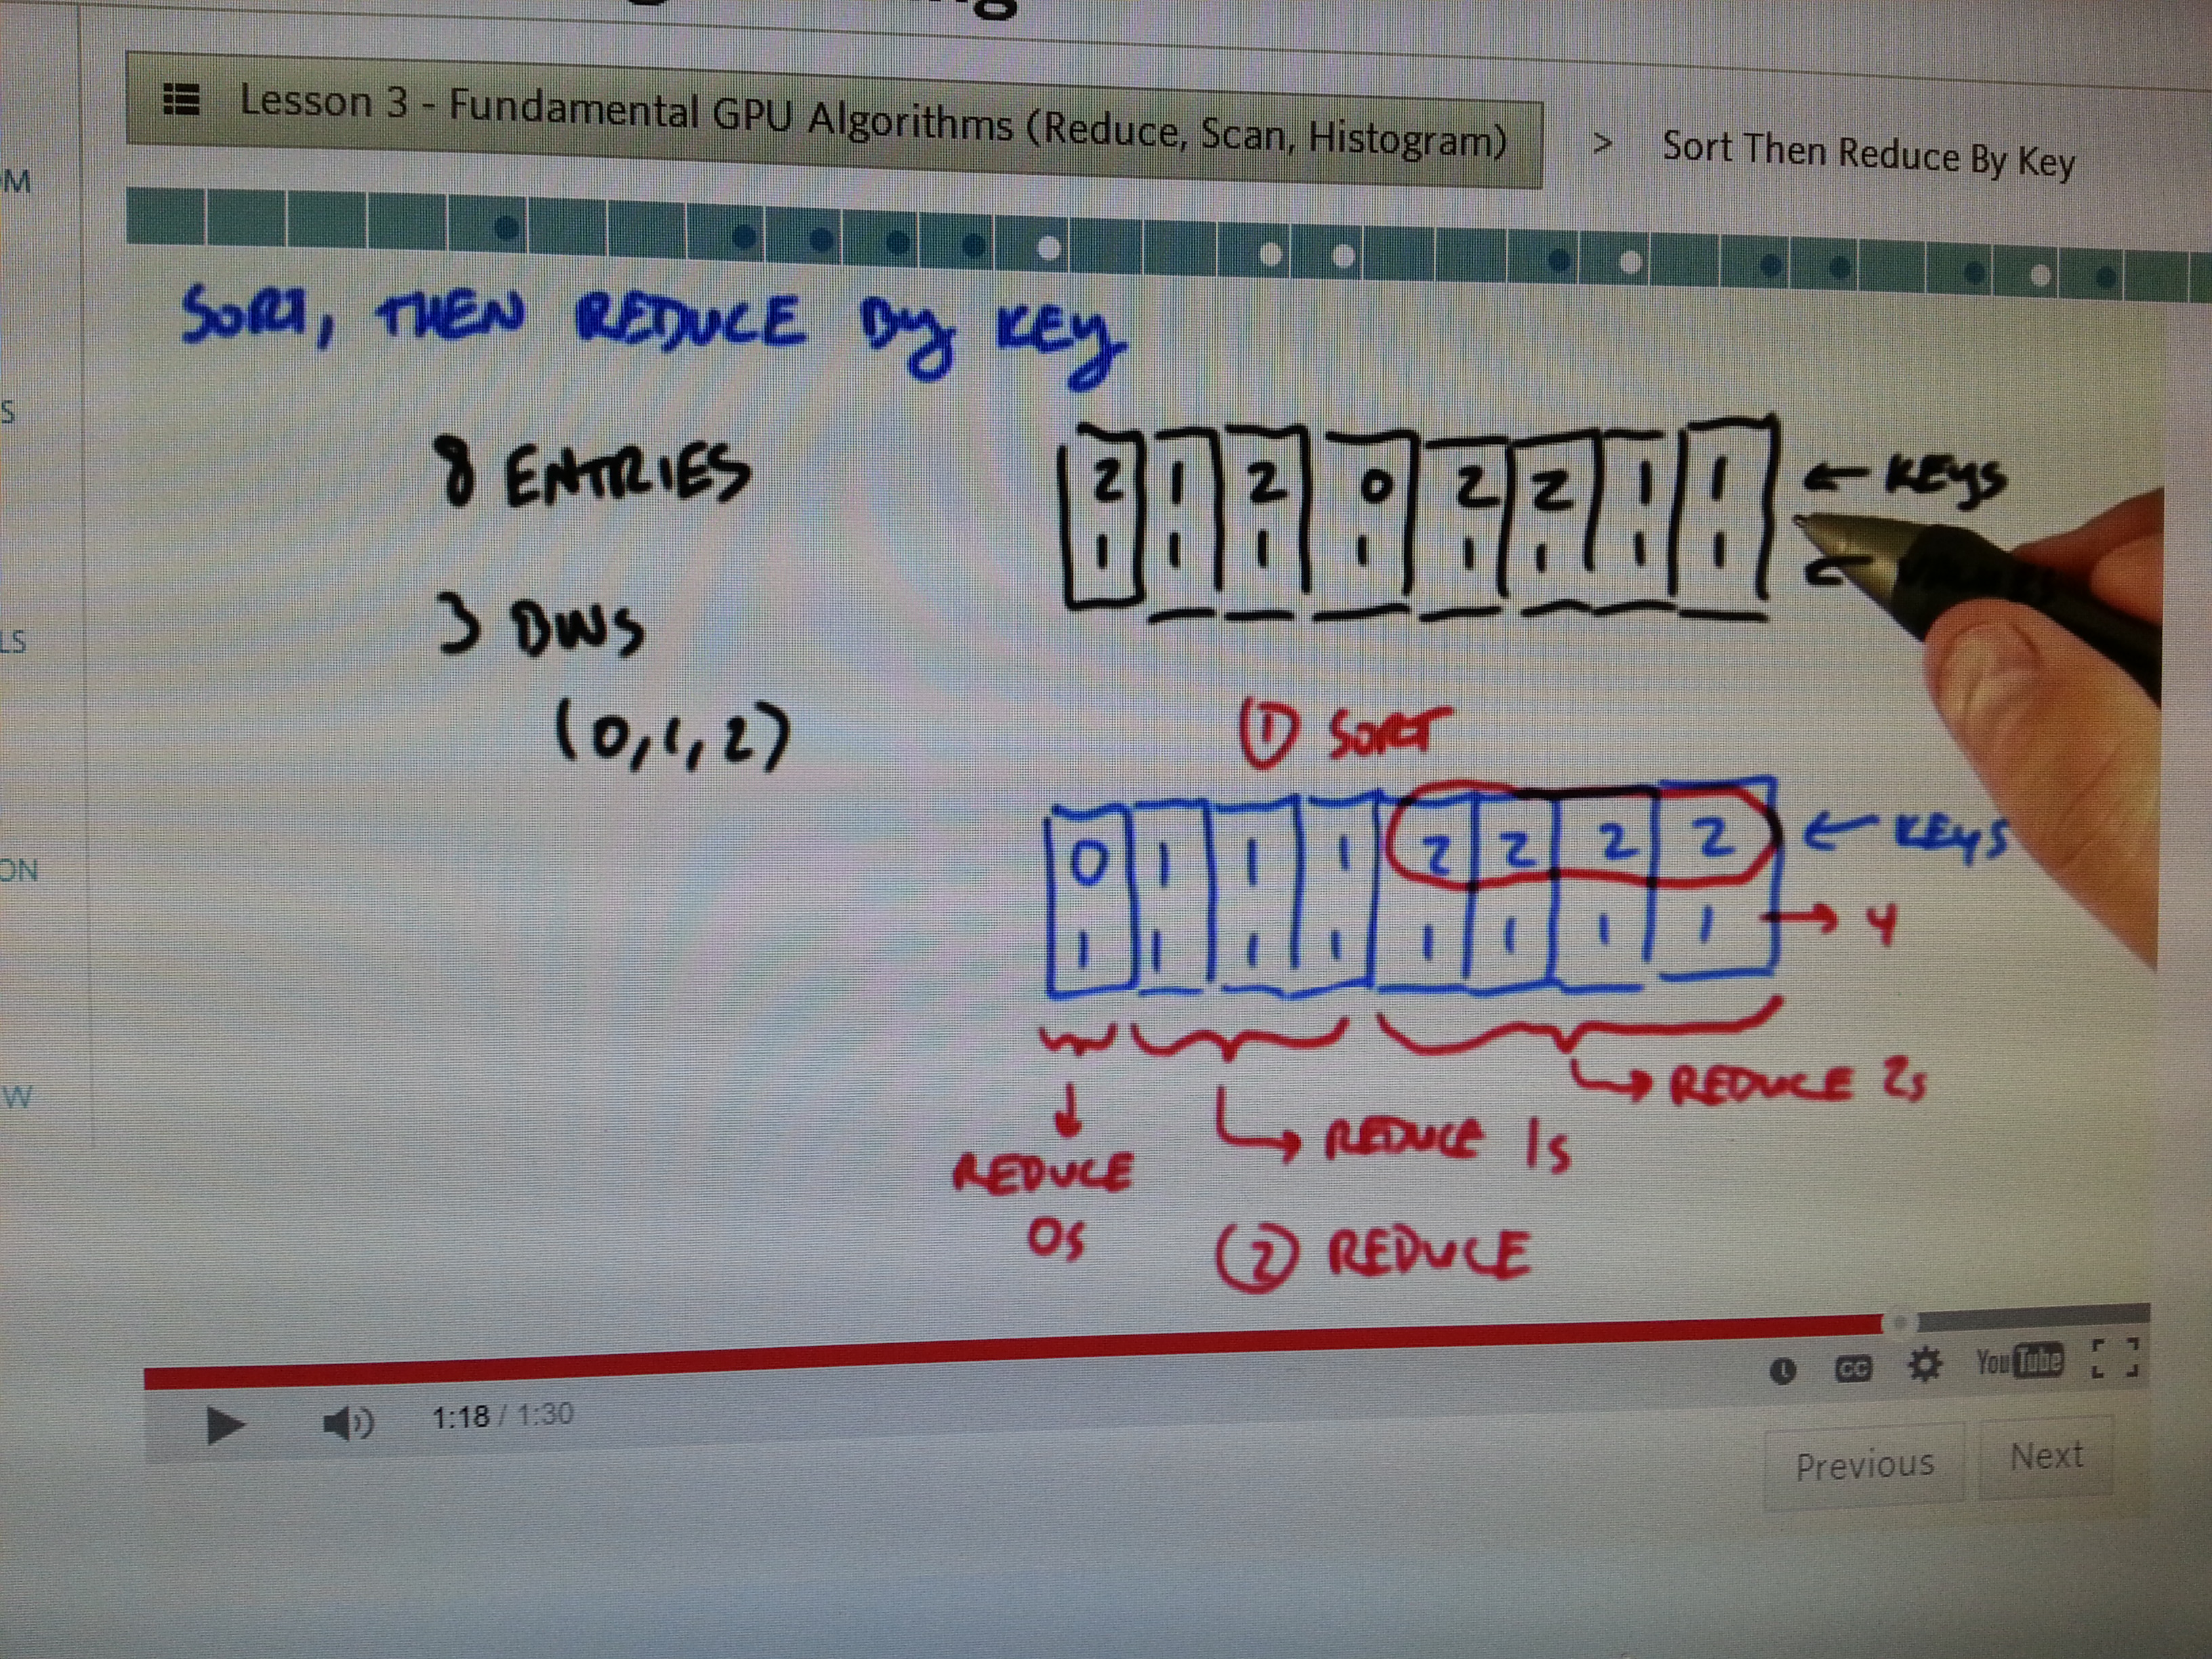 M
S
LS
ON
W
Lesson 3 - Fundamental GPU Algorithms (Reduce, Scan, Histogram) > Sort Then Reduce By Key
SORT, THEN REDUCE By KEy
8 ENTRIES
3 BINS
(0,1,2)
2 1 2 0 2 2 1 1 ← KEyS
1 1 1 1 1 1 1 1 ←
① SORT
0 1 1 1 2 2 2 2 ← KEyS
1 1 1 1 1 1 1 1 → 4
REDUCE 2s
REDUCE 1s
REDUCE
0s
② REDUCE
1:18 / 1:30
CC
YouTube
Previous
Next